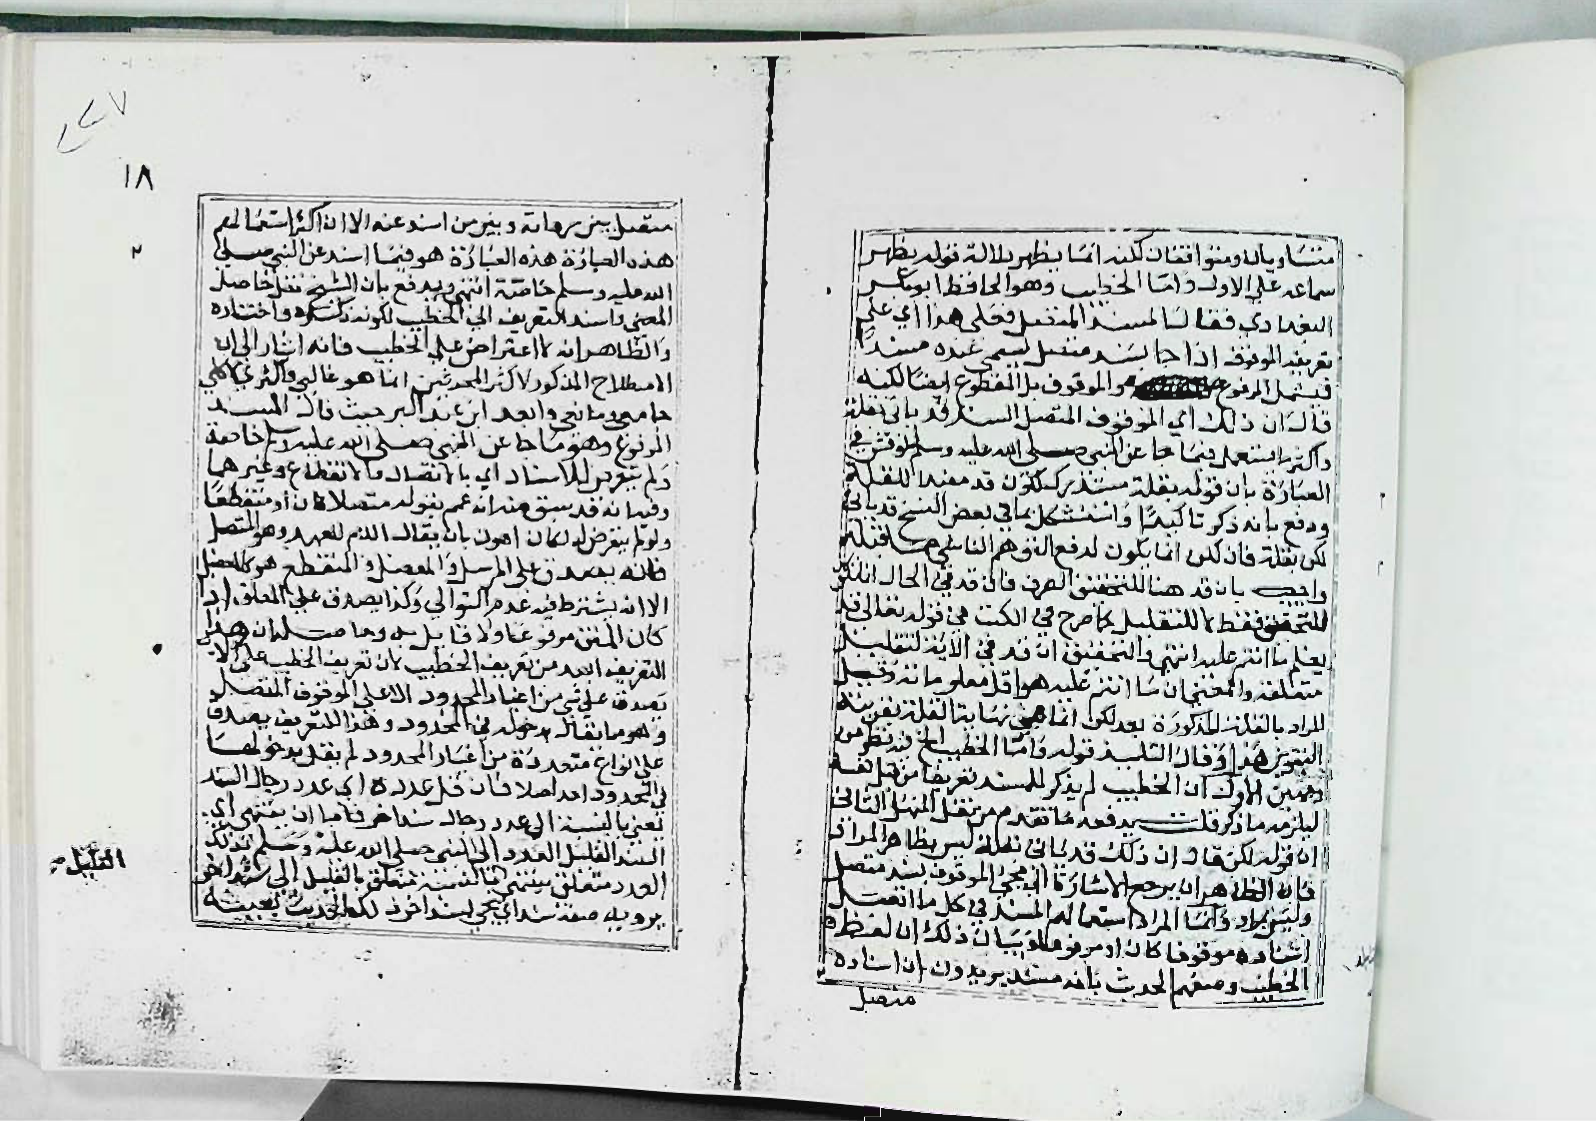 متساويان ومتوافقان لكنه انما يظهر بدلالة قوله يظهر
سماعه علي الاول واما الخطيب وهو الحافظ ابو بكر
البغدادي فقال المسند المتصل فعلي هذا اي علي
تعريفه الموقوف اذا جا بسند متصل يسمي عنده مسندا
فيشمل المرفوع والموقوف بل المقطوع ايضا لكنه
قال ان ذلك اي الموقوف المتصل السند قد ياتي بقلة
واكثر ما يستعمل فيما جا عن النبي صلى الله عليه وسلم ونوقش في
العبارة بان قوله بقلة مستدرك لكون قد مفيدا للقلة
ودفع بانه ذكر تاكيدا واستشكل بما في بعض النسخ قد ياتي
لكن بقلة فان لكن انما يكون لدفع التوهم الناشي مما قبله
واجيب بان قد هنا للتحقيق الصرف فان قد في الحال
للتحقيق فقط لا للتقليل كما صرح في الكشف في قوله تعالى قد
يعلم ما انتم عليه انتهي والتحقيق ان قد في الاية لتقليل
متعلقه والمعني ان ما انتم عليه هو اقل معلوماته وقيل
المراد بالقلة المذكورة بعد لكن انما هي نهاية القلة بقرينة
التنوين هذا وقال التلميذ قوله واما الخطيب الخ فيه نظر من
وجهين الاول ان الخطيب لم يذكر للمسند تعريفا من قبل نفسه
ليلزمه ما ذكر قلت يدفعه ما تقدم من نقل المنهل الثاني
ان قوله لكن قال ان ذلك قد ياتي بقلة ليس بظاهر المراد
فان الظاهر ان يرجع الاشارة الي مجي الموقوف بسند متصل
وليس بمراد وانما المراد استعمالهم المسند في كل ما اتصل
اسناده موقوفا كان او مرفوعا وبيان ذلك ان لفظه
الخطيب وصفهم الحديث بانه مسند يريدون ان اسناده
متصل
١٨
متصل بين رواته وبين من اسند عنه الا ان اكثر استعمالهم
هذه العبارة هذه العبارة هو فيما اسند عن النبي صلى
الله عليه وسلم خاصة انتهي ويدفع بان الشيخ نقل حاصل
المعني واسند التعريف الي الخطيب لكونه ذكره واختاره
والظاهر انه لا اعتراض علي الخطيب فانه اشار الي ان
الاصطلاح المذكور لاكثر المحدثين انما هو غالبي واكثري لا كلي
جامعي ومانعي وابعد ابن عبد البر حيث قال المسند
المرفوع وهو ما جا عن النبي صلى الله عليه وسلم خاصة
ولم يتعرض للاسناد اي بالاتصال والانقطاع وغيرهما
وفيه انه قد سبق عنه انه عمم بقوله متصلا كان او منقطعا
ولو لم يتعرض له لكان اهون بان يقال اللام للعهد وهو المتصل
فانه يصدق علي المرسل والمعضل والمنقطع هو كالمعضل
الا انه يشترط فيه عدم التوالي وكذا يصدق علي المعلق اذا
كان المتن مرفوعا ولا قايل به وحاصله ان هذا
التعريف ابعد من تعريف الخطيب لان تعريف الخطيب
يصدق علي شي من اغيار المحدود الا علي الموقوف المتصل
وهو ما يقال بدخوله في المحدود وهذا التعريف يصدق
علي انواع متعددة من اغيار المحدود لم يقل بدخولها
في المحدود احد اصلا فان قل عدده اي عدد رجال السند
يعني بالنسبة الي عدد رجال سند اخر فاما ان ينتهي اي
السند القليل العدد الى النبي صلى الله عليه وسلم بذلك
العدد متعلق بينتهي بالنسبة متعلق بالقليل الى سند اخر
يرويه صفة سند اي يجي بسند اخر ذلك الحديث بعينه
القليل صح